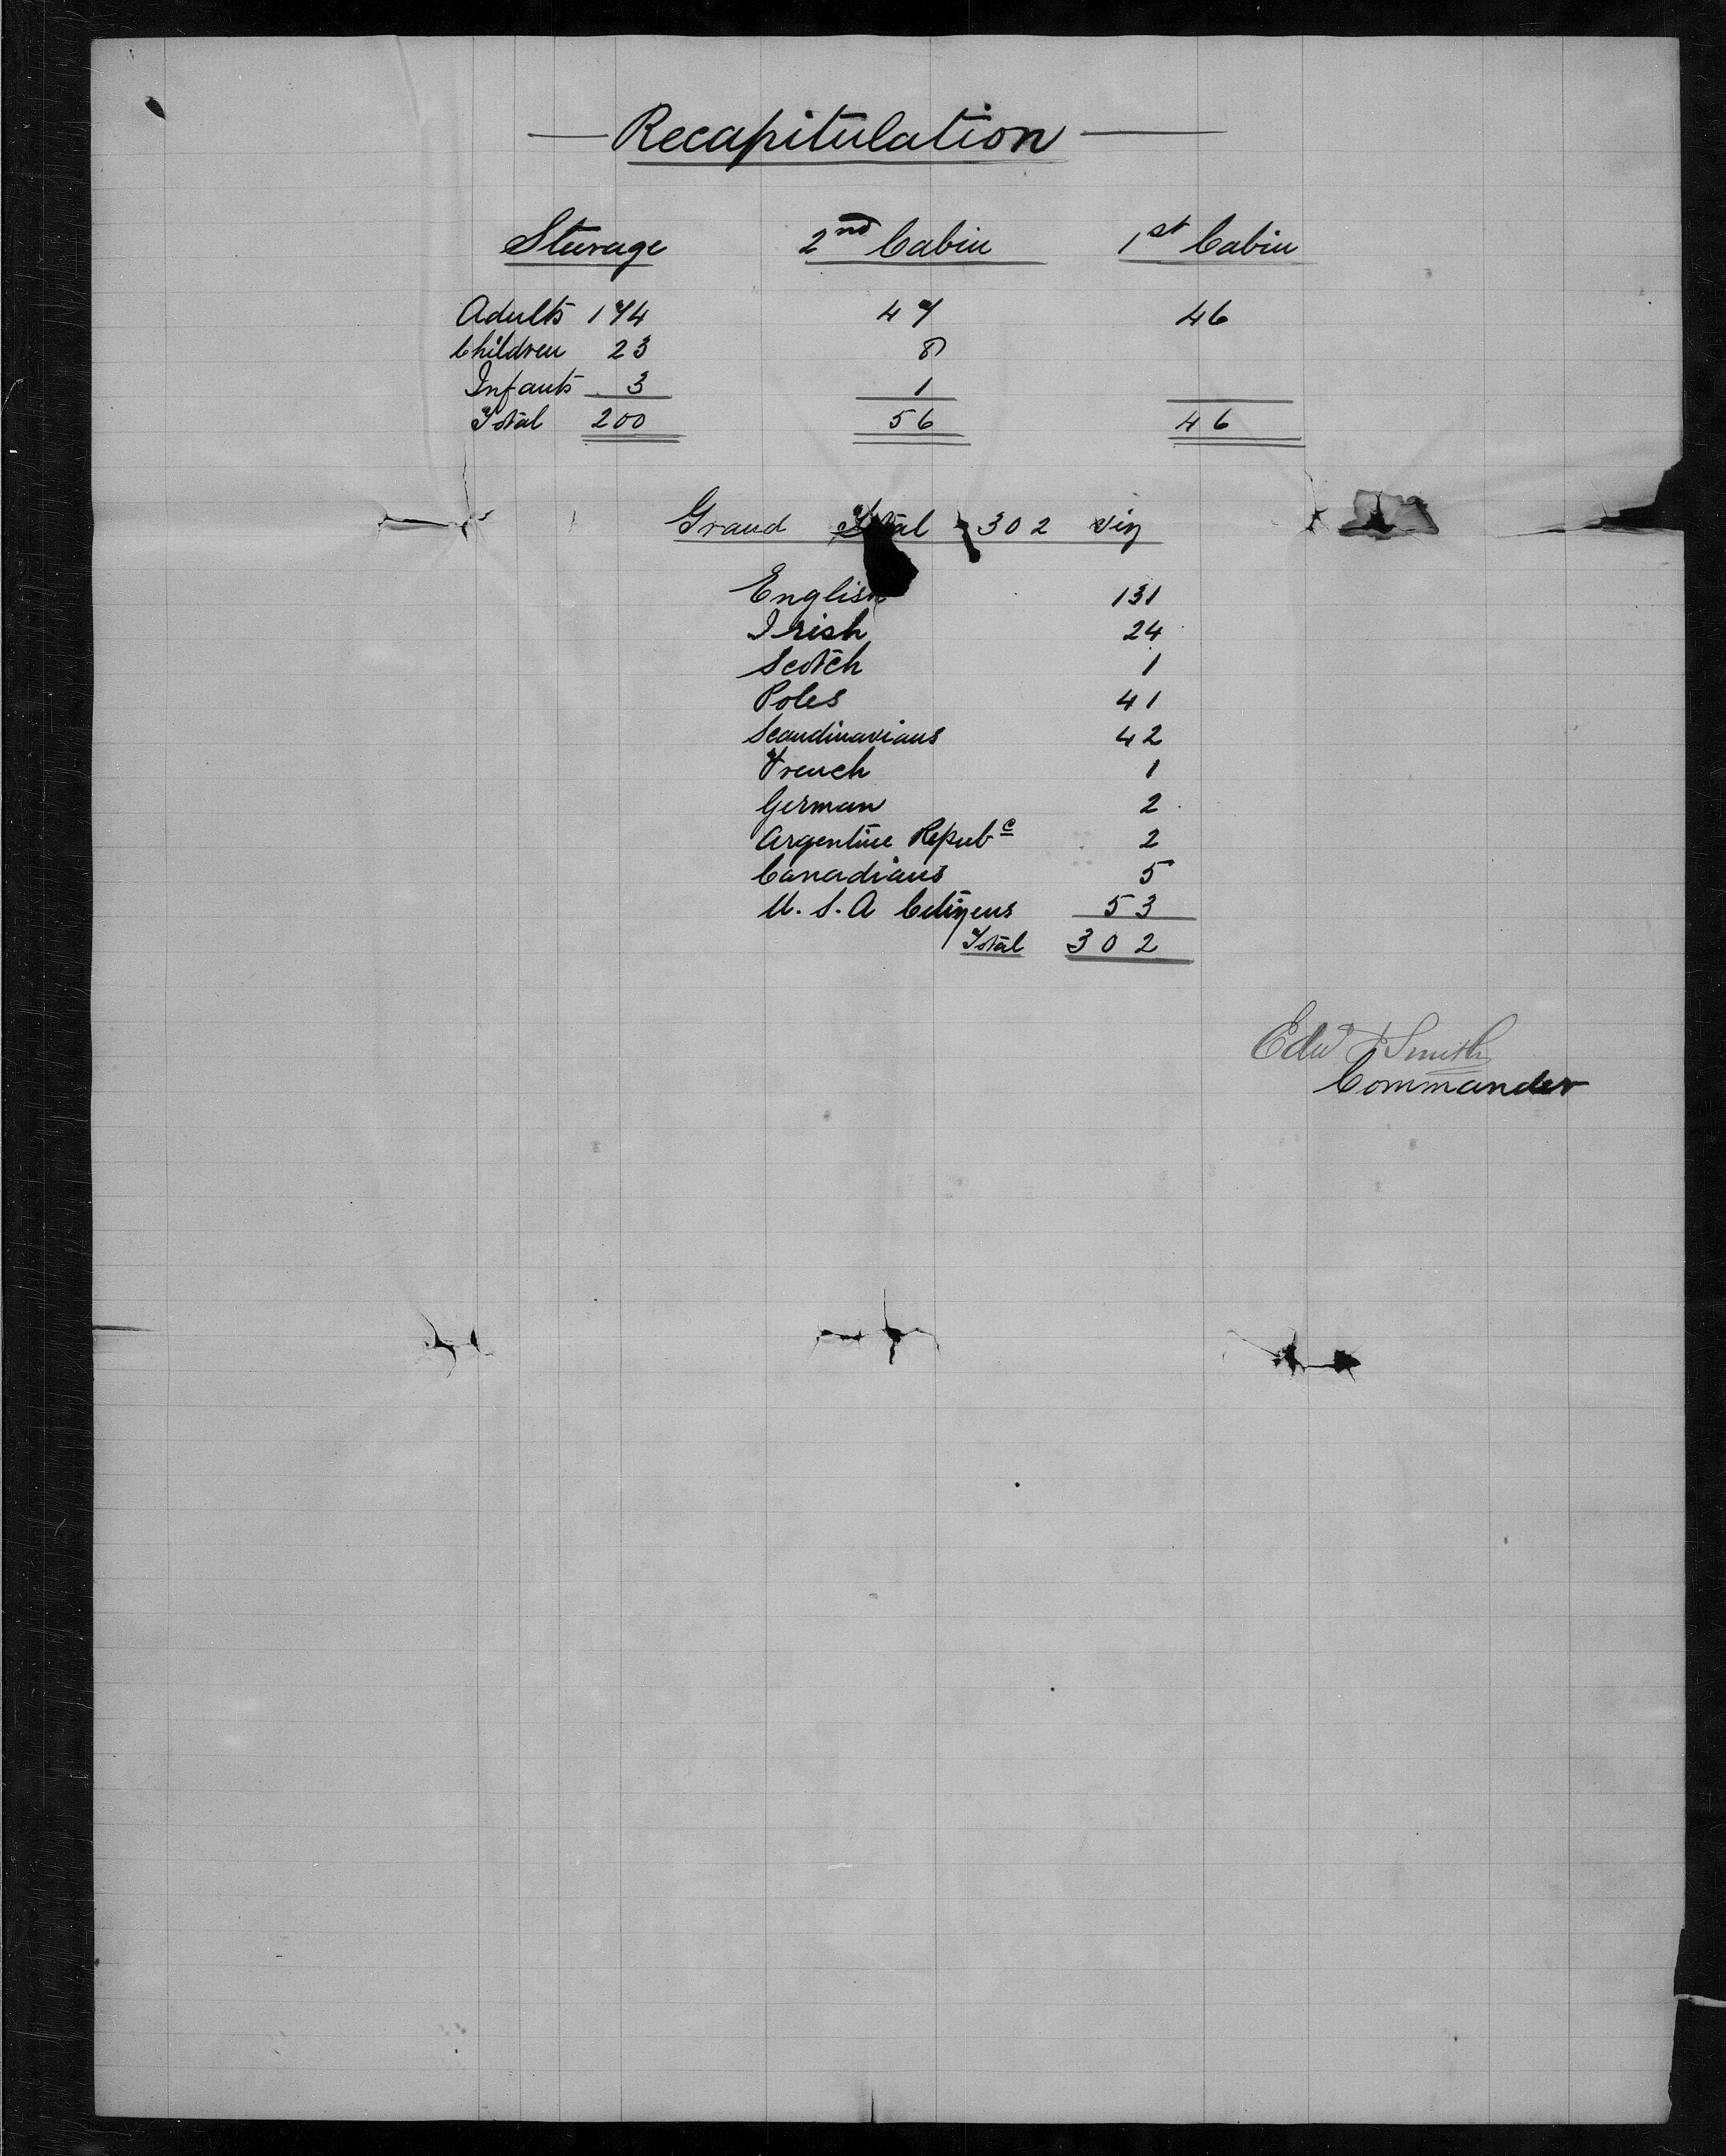 Recapitulation
Steerage 2nd Cabin 1st Cabin
Adults 174 47 46
Children 23 8
Infants 3 1
Total 200 56 46
Grand Total 302 viz
English 131
Irish 24
Scotch 1
Poles 41
Scandinavians 42
French 1
German 2
Argentine Repubc 2
Canadians 5
U.S.A Citizens 53
Total 302
Edwd J Smith
Commander